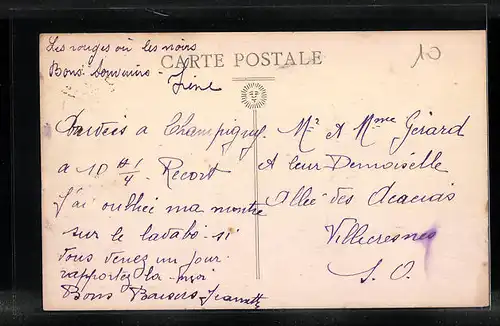 Les rouges où les noirs
Bons Souvenirs -
Line
CARTE POSTALE
10
Arrivées a Champigny
a 10 H 1/4. Recort
J'ai oublié ma montre
sur le lavabo - si
vous venez un jour
rapportez la - moi
Bons Baisers Jeannette
Mr & Mme Gérard
et leur Demoiselle
Allée des Acacias
Villecresnes
S. O.